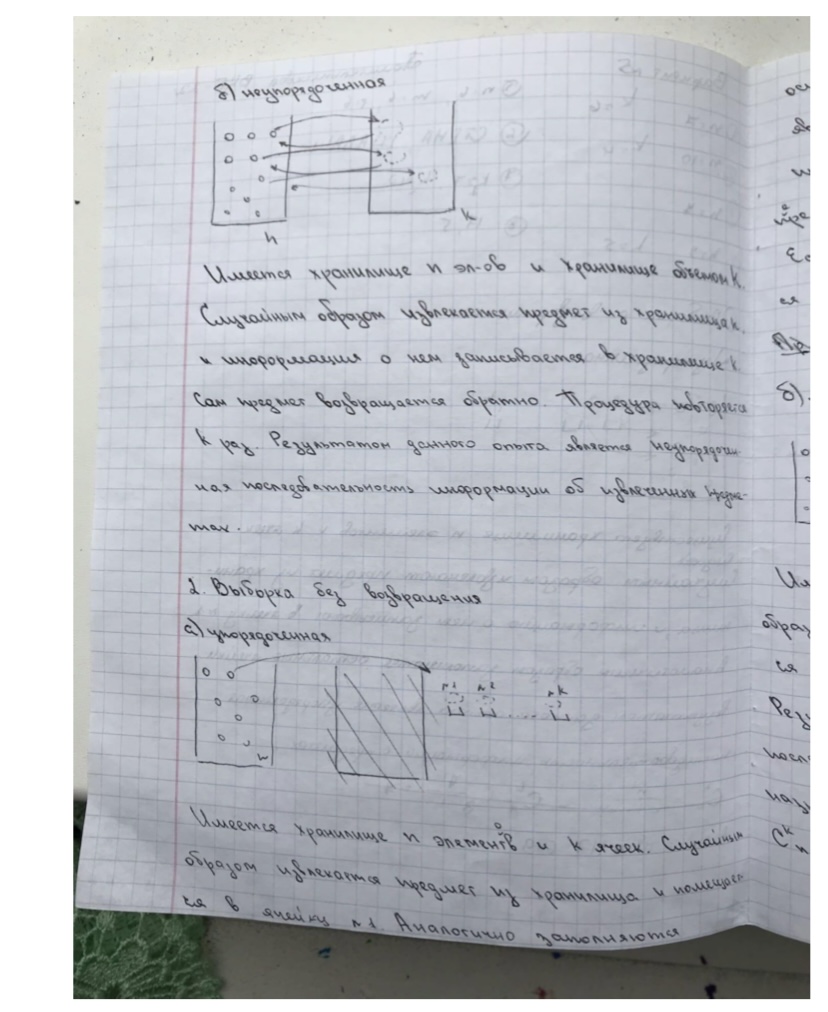 б) неупорядоченная
n
k
Имеется хранилище n эл-ов и хранилище объемом k.
Случайным образом извлекается предмет из хранилища k.
и информация о нем записывается в хранилище k
Сам предмет возвращается обратно. Процедура повторяется
k раз. Результатом данного опыта является неупорядочен-
ная последовательность информации об извлеченных
тах.
2. Выборка без возвращения
а) упорядоченная
n
№1 №2 .... №k
Имеется хранилище n элементов и k ячеек. Случайным
образом извлекается предмет из хранилища и помещает
ся в ячейку №1. Аналогично заполняются
б).
образ
ся
Резу
посл
наз
C k n